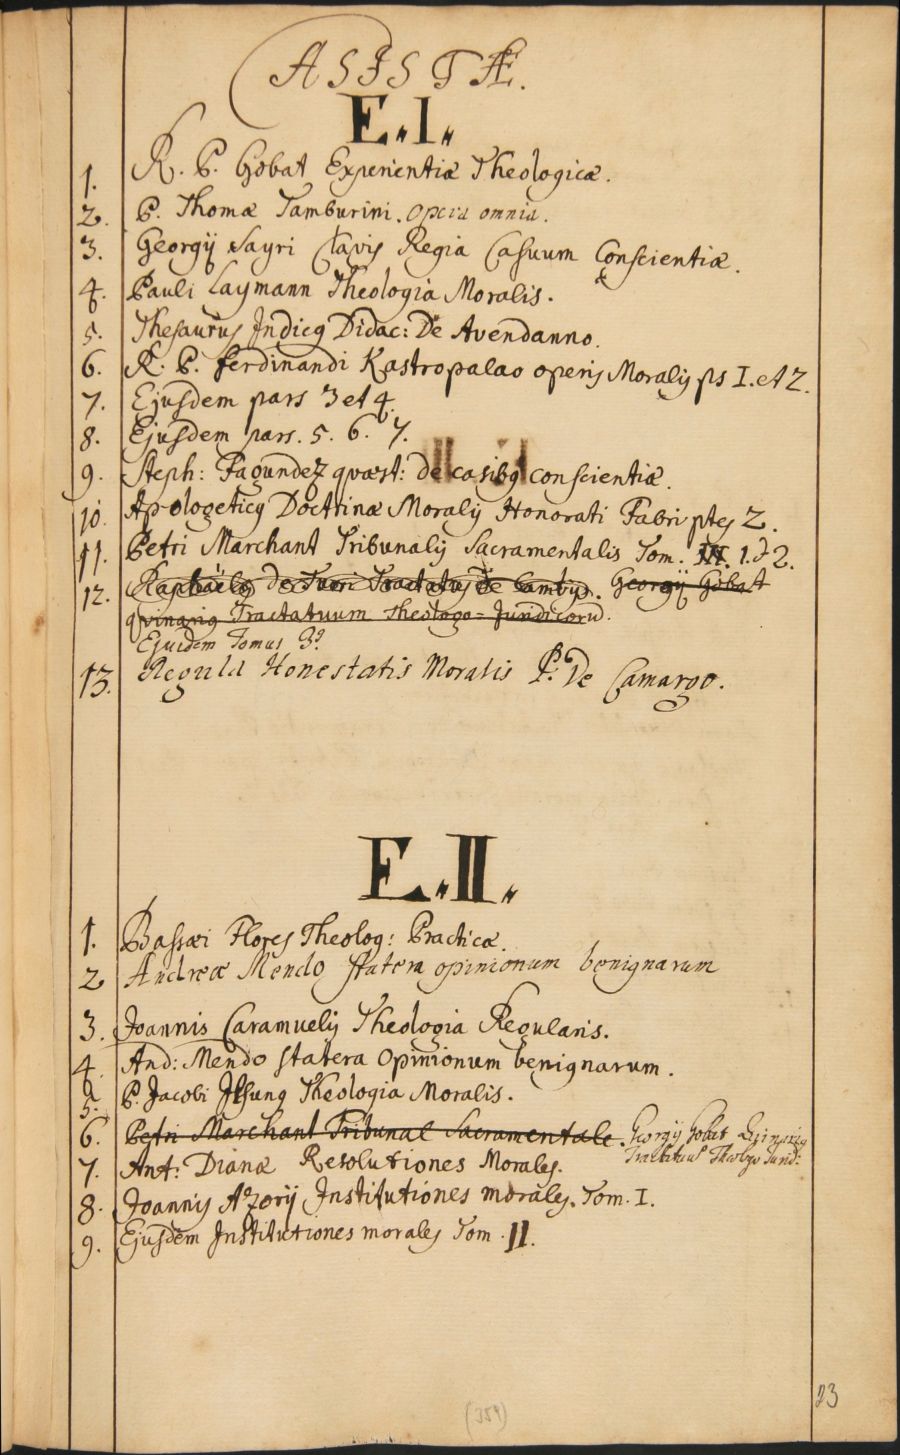 CASISTÆ.
E.I.
1. R. P. Gobat Experientiæ Theologicæ.
2. P. Thomæ Tamburini. opera omnia.
3. Georgij Sayri Clavis Regia Casuum Conscientiæ.
4. Pauli Laymann Theologia Moralis.
5. Thesaurus Indicq Didac: De Avendanno.
6. R. P. ferdinandi Kastropalao operis Moralis ps I. et 2.
7. Ejusdem pars 3 et 4.
8. Ejusdem pars. 5. 6. 7.
9. Steph: Fagundez qvæst: de casibq conscientiæ.
10. Apologeticq Doctrinæ Moralis Honorati Fabri ptes 2.
11. Petri Marchant Tribunalis Sacramentalis Tom. III. 1. & 2.
12. Raphaëlis De Turri Tractatus De Cambijs. Georgij Gobat
qvinariq Tractatuum Theologo-Juridicorū.
Ejusdem Tomus 3.
13. Regula Honestatis Moralis P. De Camargo.
E.II.
1. Bassæi Flores Theolog: Practicæ.
2 Andreæ Mendo statera opinionum benignarum
3. Joannis Caramuelis Theologia Regularis.
4. And: Mendo statera Opinionum benignarum.
5. P. Jacobi Illsung Theologia Moralis.
6. Petri Marchant Tribunal Sacramentale. Georgij Gobat Quinariq
Tractatuū Theologo Jurid:
7. Ant: Dianæ Resolutiones Morales.
8. Joannis Azorij Institutiones morales. Tom. I.
9. Ejusdem Institutiones morales Tom. II.
23
(359)